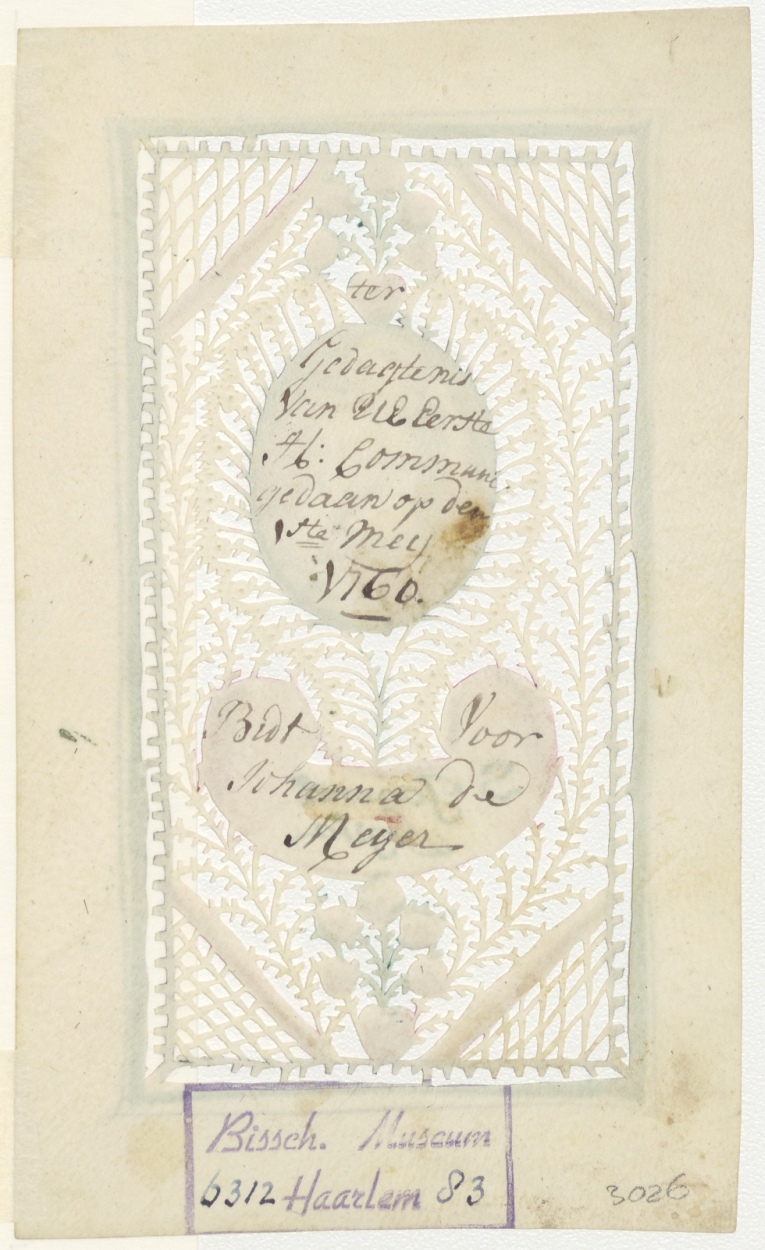 ter
Gedagtenis
Van UE Eerste
H: Communi
gedaan op den
1ste Mey
1760.
Bidt Voor
Johanna de
Meyer
Bissch. Museum
6312 Haarlem 83
3026